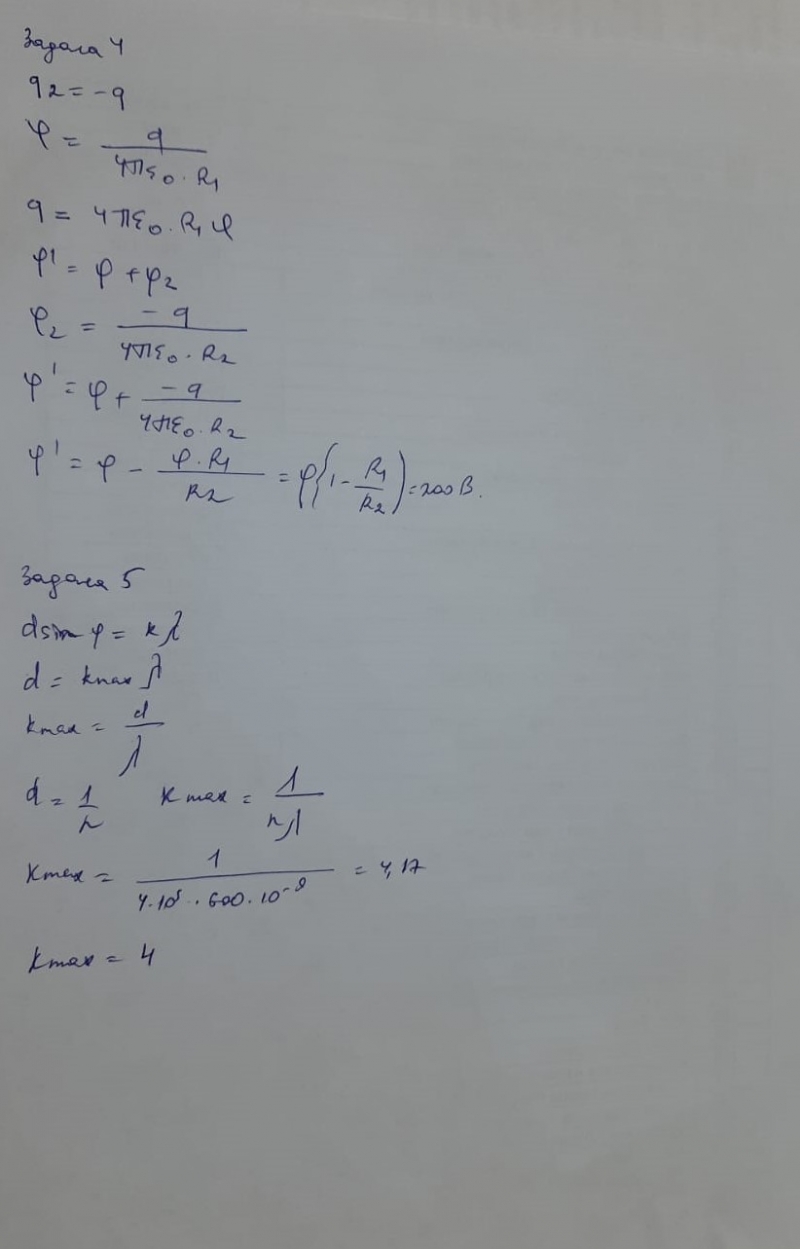 Задача 4
q2 = -q
φ = q / 4πε₀ · R₁
q = 4πε₀ · R₁ φ
φ' = φ + φ₂
φ₂ = -q / 4πε₀ · R₂
φ' = φ + -q / 4πε₀ · R₂
φ' = φ - φ · R₁ / R2 = φ(1 - R₁ / R₂) = 200 В.
Задача 5
d sin φ = kλ
d = kmax λ
kmax = d / λ
d = 1 / n kmax = 1 / nλ
kmax = 1 / 4·10⁵ · 600 · 10⁻⁹ = 4,17
kmax = 4